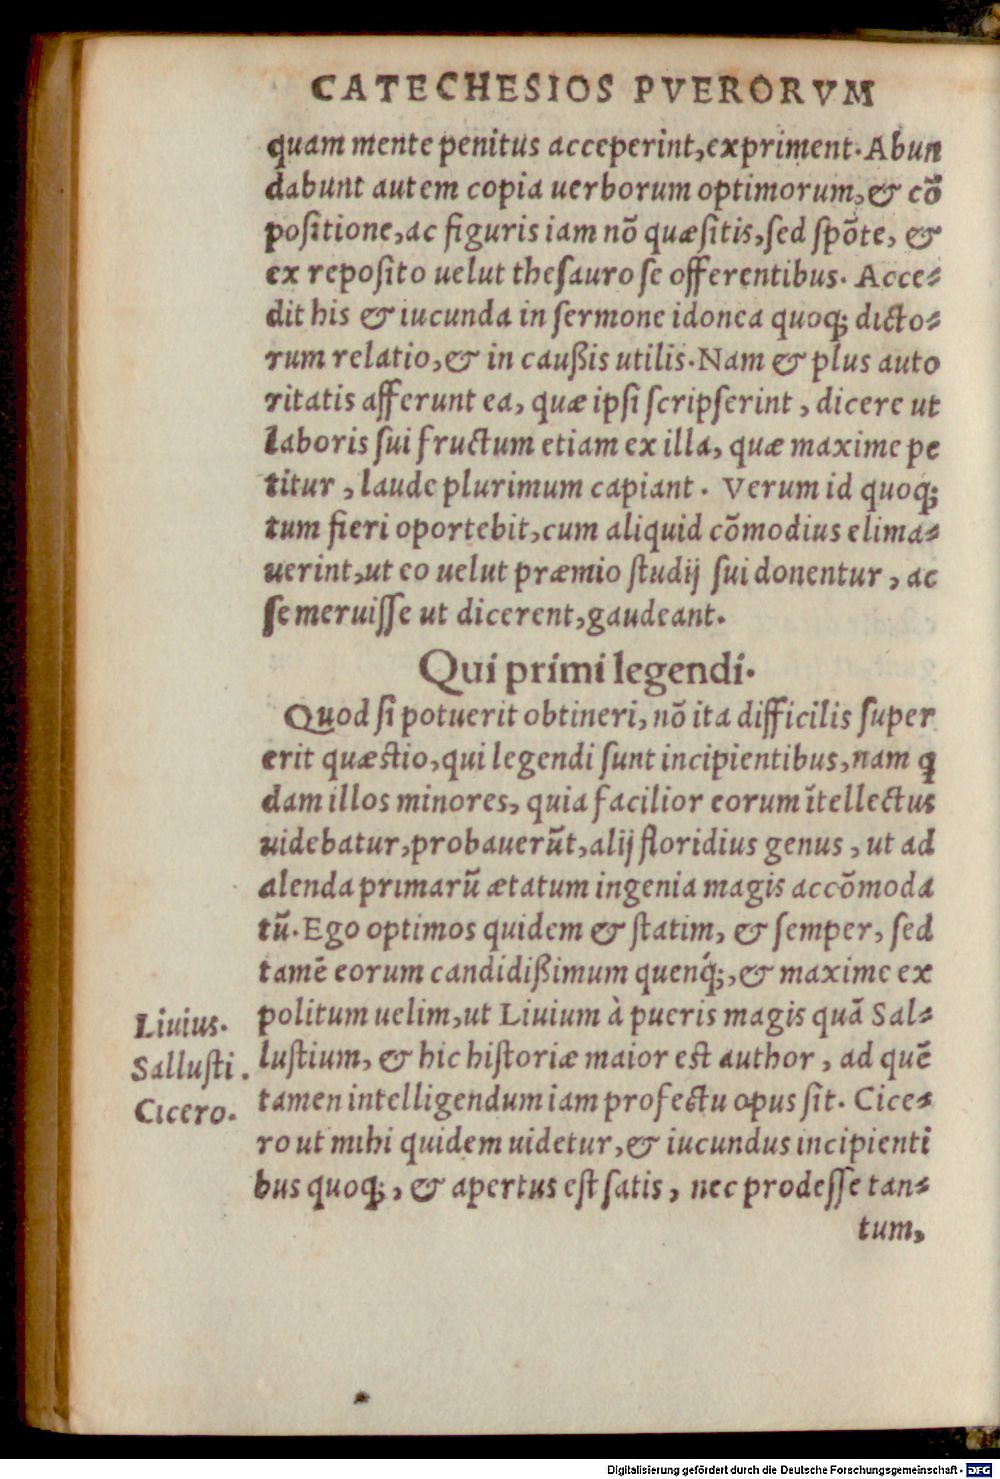 CATECHESIOS PVERORVM
quam mente penitus acceperint,expriment. Abun
dabunt autem copia uerborum optimorum, & cõ
positione,ac figuris iam nõ quæsitis,sed spõte, &
ex reposito uelut thesauro se offerentibus. Acce-
dit his & iucunda in sermone idonea quoq; dicto-
rum relatio,& in caußis utilis. Nam & plus auto
ritatis afferunt ea, quæ ipsi scripserint, dicere ut
laboris sui fructum etiam ex illa, quæ maxime pe
titur, laude plurimum capiant. Verum id quoq;
tum fieri oportebit,cum aliquid cõmodius elima-
uerint,ut eo uelut præmio studij sui donentur, ac
se meruisse ut dicerent,gaudeant.
Qui primi legendi.
Quod si potuerit obtineri, nõ ita difficilis super
erit quæstio,qui legendi sunt incipientibus,nam q
dam illos minores, quia facilior eorum ĩtellectus
uidebatur,probauerũt,alij floridius genus, ut ad
alenda primarũ ætatum ingenia magis accõmoda
tũ. Ego optimos quidem & statim, & semper, sed
tamẽ eorum candidißimum quenq́;,& maxime ex
politum uelim,ut Liuium à pueris magis quã Sal-
lustium, & hic historiæ maior est author, ad quẽ
tamen intelligendum iam profectu opus sit. Cice-
ro ut mihi quidem uidetur,& iucundus incipienti
bus quoq;, & apertus est satis, nec prodesse tan-
tum,
Liuius.
Sallusti.
Cicero.
Digitalisierung gefördert durch die Deutsche Forschungsgemeinschaft - DFG